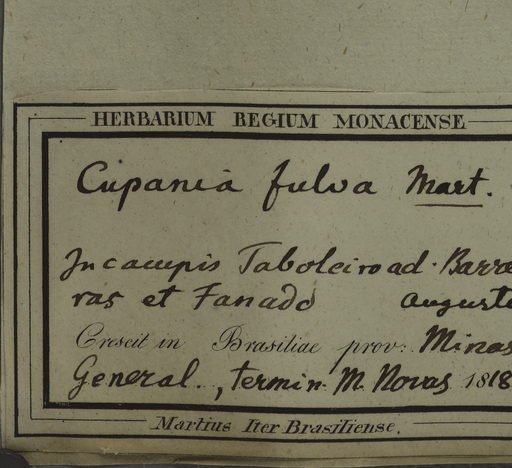 HERBARIUM REGIUM MONACENSE
Cupania fulva Mart.
In campis Taboleiro ad Barre
ras et Fanado Augusto
Crescit in Brasiliae prov: Minas
General., termin. M. Novas 1818
Martius Iter Brasiliense.